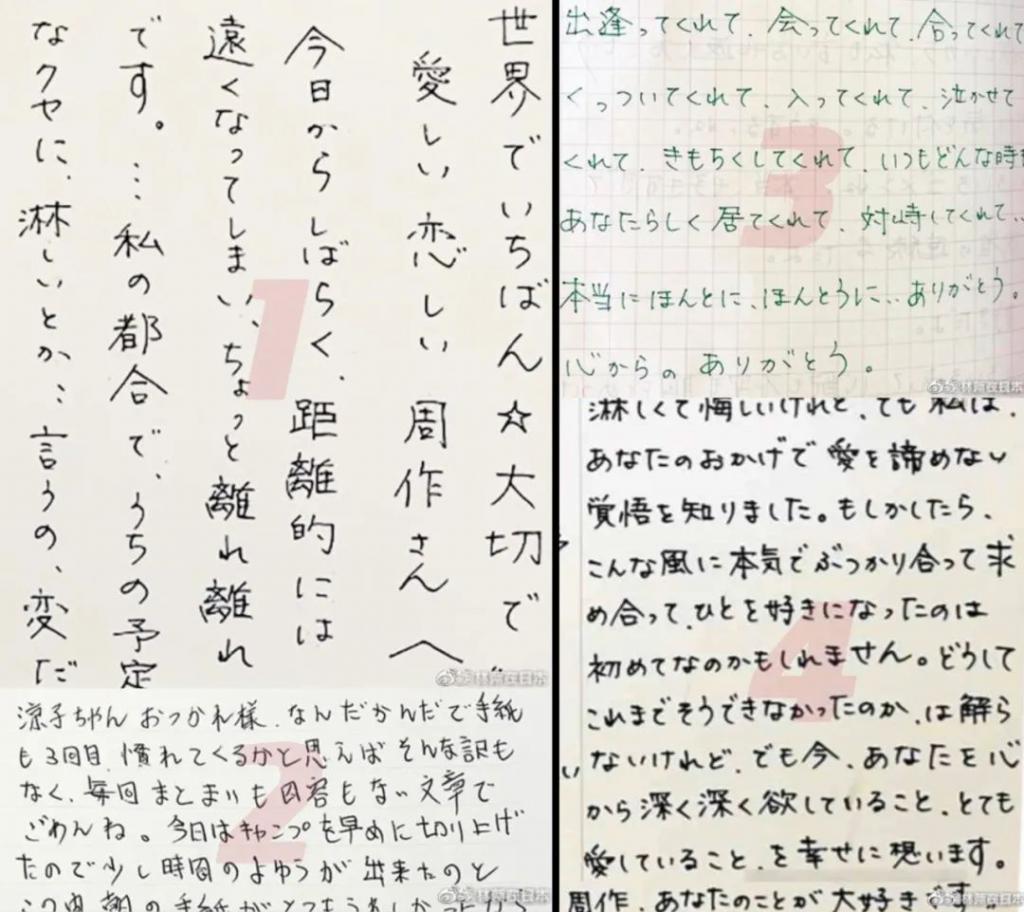 世界でいちばん☆大切で
愛しい恋しい周作さんへ
今日からしばらく、距離的には
遠くなってしまい、ちょっと離れ離れ
です。…私の都合で、うちの予定
なクセに、淋しいとか、言うの、変だ
1
涼子ちゃんおつかれ様。なんだかんだで手紙
も3回目、慣れてくるかと思えばそんな訳も
なく、毎回まとまりも内容もない文章で
ごめんね。今日はキャンプを早めに切り上げ
たので少し時間のよゆうが出来たのと
2
出逢ってくれて、会ってくれて、合ってくれて
くっついてくれて、入ってくれて、泣かせて
くれて、きもちくしてくれて、いつもどんな時も
あなたらしく居てくれて、対峙してくれて…
本当にほんとに、ほんとうに…ありがとう。
心からの ありがとう。
3
淋しくて悔しいけれど、でも私は、
あなたのおかげで愛を諦めない
覚悟を知りました。もしかしたら、
こんな風に本気でぶつかり合って求
め合って、ひとを好きになったのは
初めてなのかもしれません。どうして
これまでそうできなかったのか、は解ら
ないけれど、でも今、あなたを心
から深く深く欲していること、とても
愛していること、を幸せに想います。
周作、あなたのことが大好きです。
4